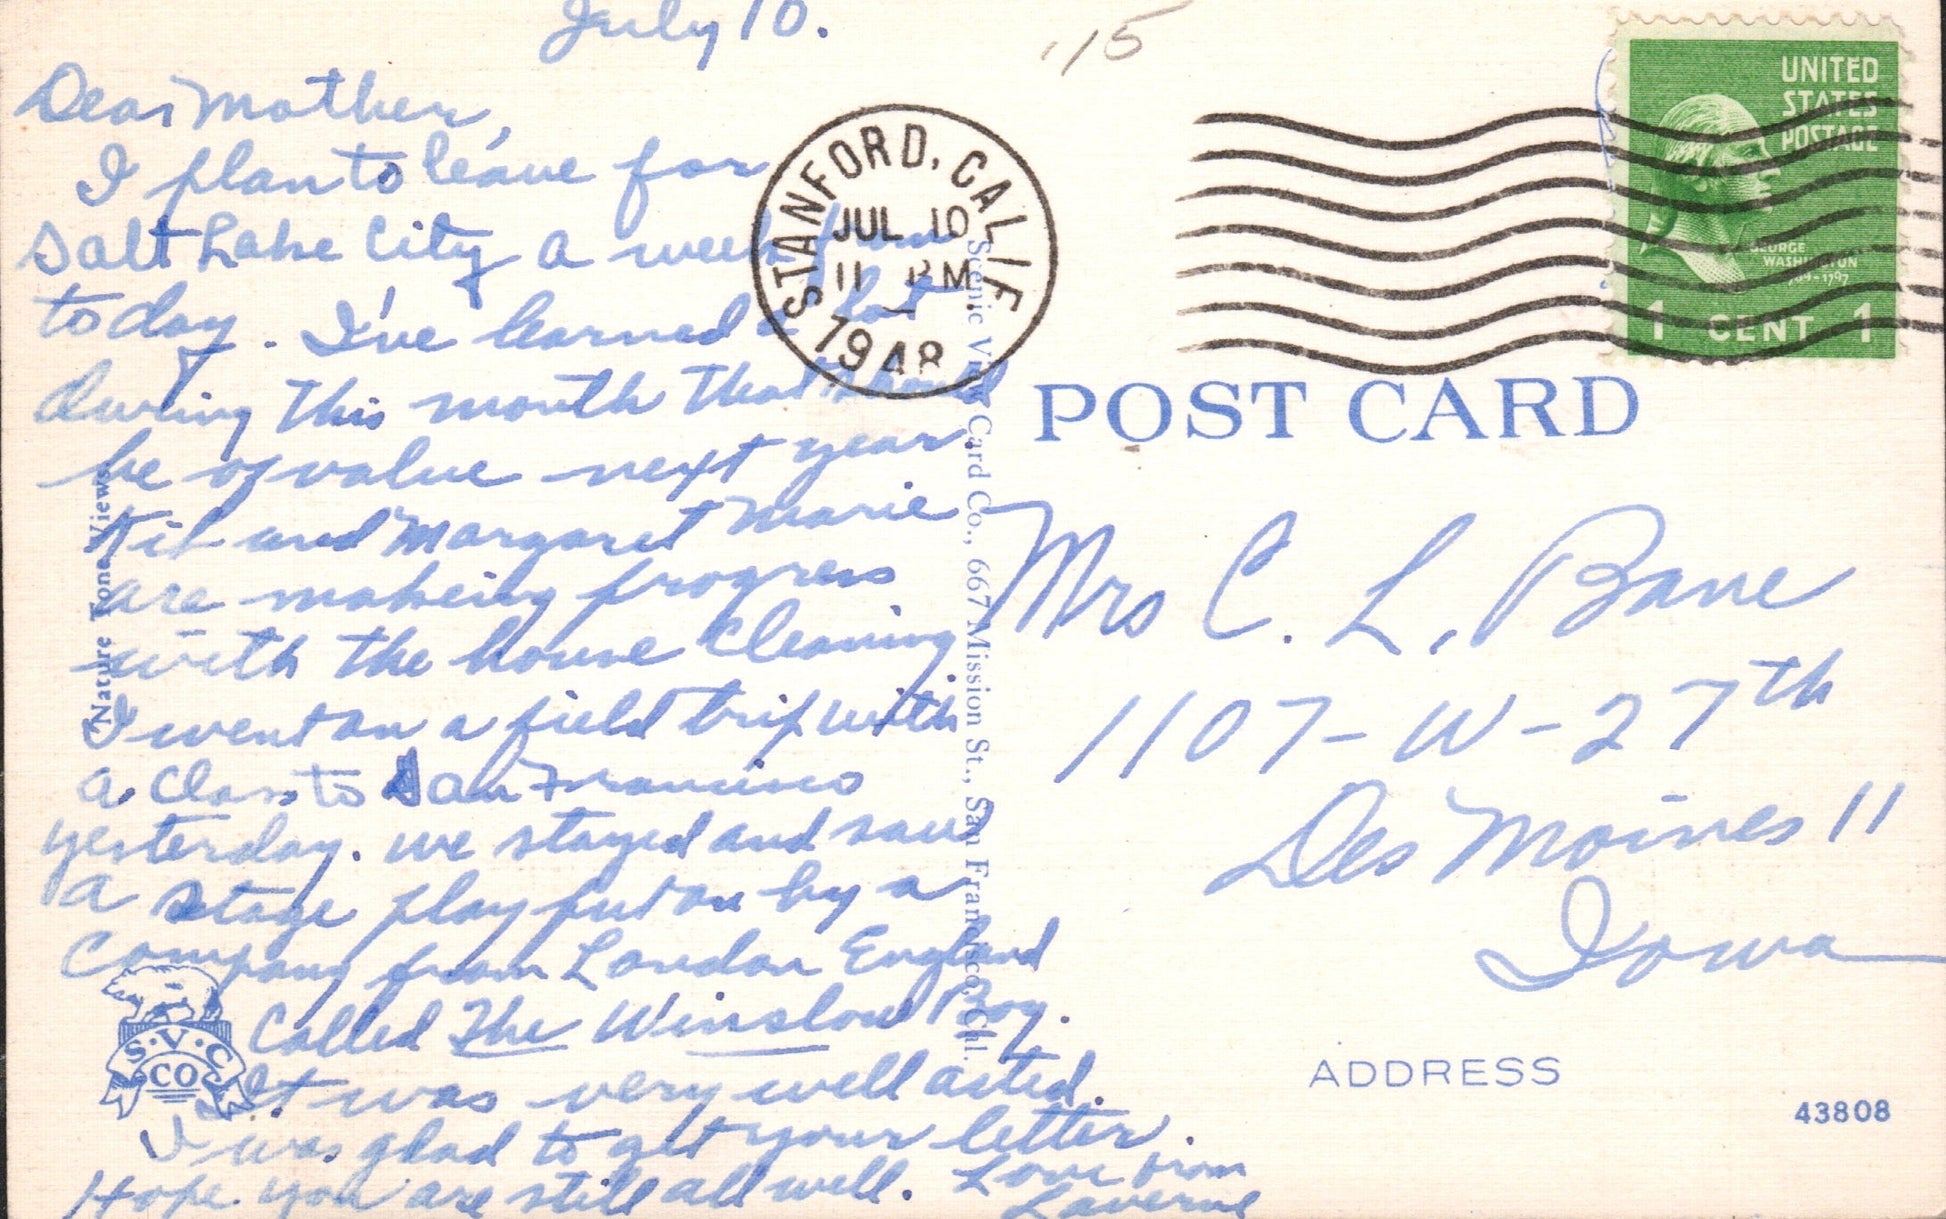 July 10.
.15
Dear Mother,
I plan to leave for
Salt Lake City a week from
today. I've learned a lot
during this month that should
be of value next year.
Kit and Margaret Marie
are makeing progress
with the house cleaning.
I went on a field trip with
a class to San Francisco
yesterday. we stayed and saw
a stage play put on by a
Company from London England
Called The Winslow Boy.
It was very well acted.
I was glad to get your letter.
Hope you are still all well. Love from
Laverne
STANFORD, CALIF.
JUL 10
11 PM
1948
UNITED
STATES
POSTAGE
GEORGE
WASHINGTON
1789-1797
1 CENT 1
POST CARD
Mrs C. L. Bane
1107-W-27th
Des Moines 11
Iowa
ADDRESS
43808
Nature Tone Views
Scenic View Card Co., 667 Mission St., San Francisco, Cal.
S.V.C
CO